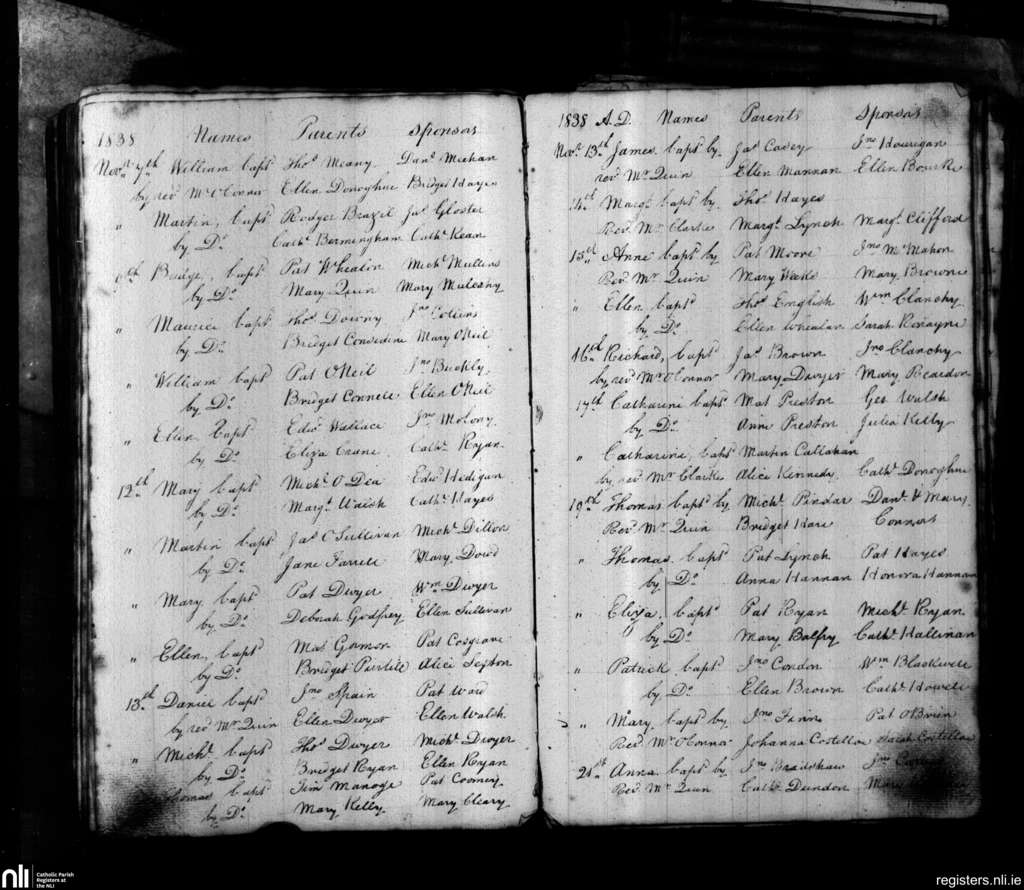 1838 Names Parents Sponsors
Novr. 7th William bapt Thos. Meany Danl. Meehan
by revd Mr O'Connor Ellen Donoghue Bridget Hayes
" Martin, bapt Rodger Brazil Jas. Gloster
by Do. Cathe. Bermingham Cathe. Kean
Bridget, bapt Pat Whealin Michl. Mullins
by Do. Mary Quin Mary
" Maurice bapt Thos. Downy Jno. Collins
by Do. Bridget Considine Mary ONeil
" William bapt Pat ONeil Jno. Buckly
by Do. Bridget Connell Ellen ONeil
" Ellen bapt Edwd Wallace Jno. Molony
by Do. Eliza Crane Cathe. Ryan
12th Mary bapt Michl. O Dea Edwd Hedigan
by Do. Margt. Cathe. Hayes
" Martin bapt Jas. O'Sullivan Michl. Dillon
by Do. Jane Farrell Mary Dowd
" Mary bapt Pat Dwyer Wm Dwyer
by Do. Deborah Godfrey Ellen Sullivan
" Ellen, bapt Mat Gorman Pat Cosgrave
by Do. Bridget Purtill Alice Sexton
13th Daniel bapt Jno. Spain Pat Ward
by revd Mr Quin Ellen Dwyer Ellen Walsh
" Michl. bapt Thos. Dwyer Michl. Dwyer
by Do. Bridget Ryan Ellen Ryan
Thomas bapt Tim Manoge Pat Cooney
by Do. Mary Kelly Mary Cleary
1838 A.D. Names Parents Sponsors
Novr. 13th James bapt by Jas. Casey Jno. Hourigan
revd Mr Quin Ellen Mannan Ellen Bourke
14th Margt. bapt by Thos. Hayes
Revd. Mr. Clarke Margt. Lynch Margt. Clifford
15th Anne bapt by Pat Moore Jno. McMahon
Revd Mr. Quin Mary Weeks Mary Browne
" Ellen bapt Thos. English Wm Clanchy
by Do. Ellen Whealan Sarah Ronayne
16th Richard, bapt Jas. Brown Jno. Clanchy
by revd Mr O'Connor Mary Dwyer Mary Reardon
17th Catharine bapt Mat Preston Geo Walsh
by Do. Anne Preston Julia Kelly
" Catharine, bapt Martin Callahan
by revd Mr Clarke Alice Kennedy Cathe. Donoghue
19th Thomas bapt by Michl. Pindar Danl. & Mary
Revd. Mr Quin Bridget Hare Connors
" Thomas bapt Pat Lynch Pat Hayes
by Do. Anna Hannan Honora Hannan
" Eliza, bapt Pat Ryan Michl. Ryan
by Do. Mary Balfry Cathe. Hallinan
" Patrick bapt Jno Condon Wm Blackwell
by Do. Ellen Brown Cathe. Howell
" Mary bapt by Jno Finn Pat OBrien
Revd. Mr O'Connor Johanna Costelloe Sarah Costelloe
21st Anna bapt by Jno Bradshaw Jno
Revd Mr Quin Cathe. Dundon Mary
nli Catholic Parish
Registers at
the NLI
registers.nli.ie